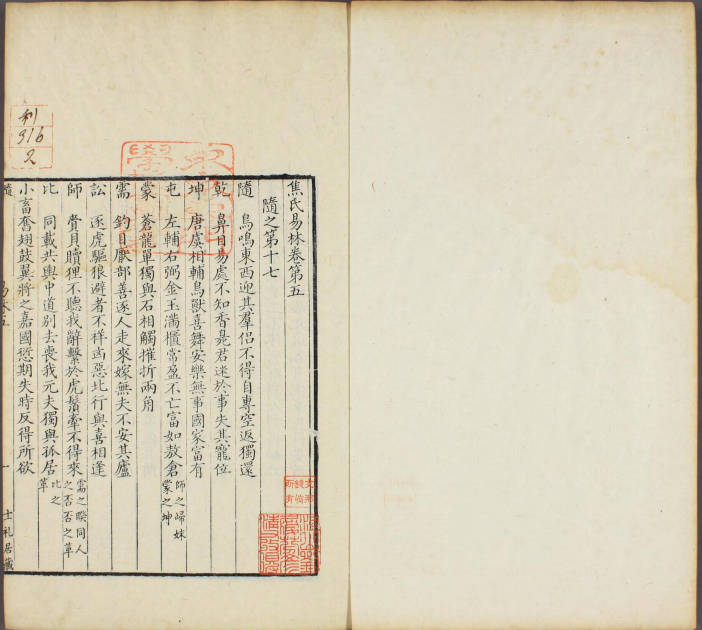 焦氏易林卷第五
隨之第十七
隨 鳥鳴東西迎其羣侶不得自專空返獨還
乾 鼻目易處不知香臭君迷於事失其寵位
坤 唐虞相輔鳥獸喜舞安樂無事國家富有
屯 左輔右弼金玉滿櫃常盈不亡富如敖倉 師之歸妹 蒙之坤
蒙 蒼龍單獨與石相觸摧折兩角
需 釣目厥部善逐人走來嫁無夫不安其廬
訟 逐虎驅狼避者不祥凶惡北行與喜相逢
師 賁貝贖狸不聽我辭繫於虎鬚牽不得來 需之睽同人之否否之革
比 同載共輿中道別去喪我元夫獨與孤居 比之革
小畜奮翅鼓翼將之嘉國愆期失時反得所欲
士礼居藏
利
316
2